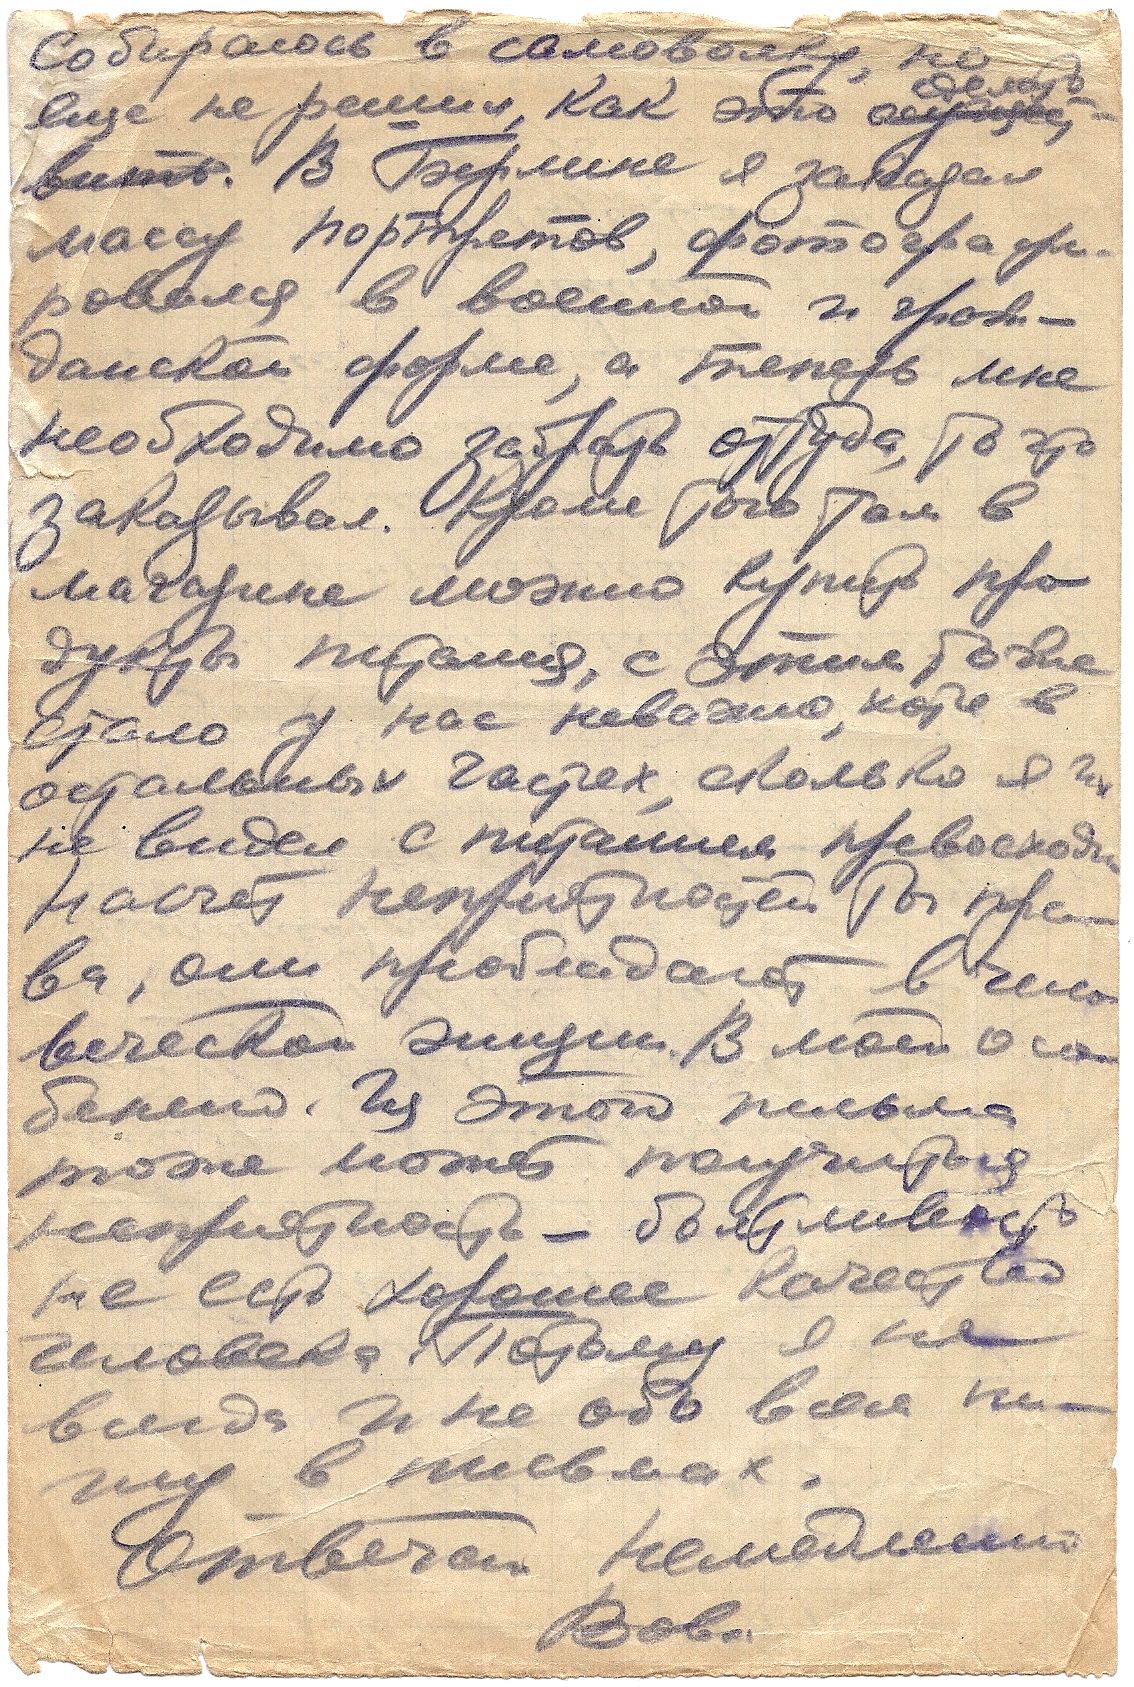 Собираюсь в самоволку, но
еще не решил, как это сделать осущест-
вить. В Берлине я заказал
массу портретов, фотографи-
ровался в военной и граж-
данской форме, а теперь мне
необходимо забрать оттуда, то что
заказывал. Кроме того там в
магазине можно купить про
дукты питания, с этим тоже
стало у нас неважно, хотя в
остальных частях, сколько я их
не видел с питанием превосходно
Насчет неприятностей ты пра-
ва, они преобладают в чело
веческой жизни. В моей осо
бенно. Из этого письма
тоже может получиться
неприятность – болтливость
не есть хорошее качество
человека. Потому я не
всегда и не обо всем пи-
шу в письмах.
Отвечай немедленно
Вова.